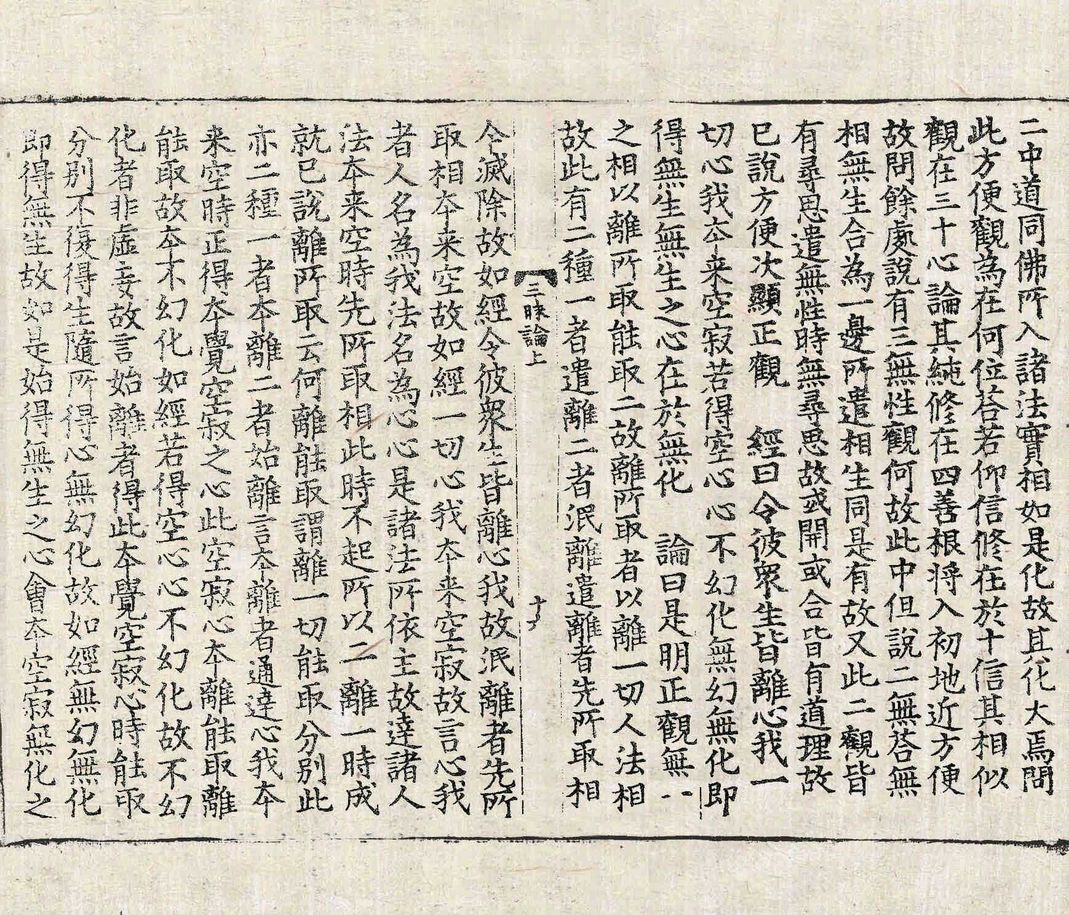 二中道同佛所入諸法實相如是化故其化大焉問
此方便觀為在何位荅若仰信修在於十信其相似
觀在三十心論其純修在四善根將入初地近方便
故問餘處說有三無性觀何故此中但說二無荅無
相無生合為一邊所遣相生同是有故又此二觀皆
有尋思遣無性時無尋思故或開或合皆有道理故
已說方便次顯正觀　經曰令彼衆生皆離心我一
切心我夲来空寂若得空心心不幻化無幻無化即
得無生無生之心在於無化　論曰是明正觀無
之相以離所取能取二故離所取者以離一切人法相
故此有二種一者遣離二者泯離遣離者先所取相
三昧論上
令滅除故如經令彼衆生皆離心我故泯離者先所
取相夲来空故如經一切心我夲来空寂故言心我
者人名為我法名為心心是諸法所依主故達諸人
法夲来空時先所取相此時不起所以二離一時成
就已說離所取云何離能取謂離一切能取分別此
亦二種一者夲離二者始離言夲離者通達心我夲
来空時正得夲覺空寂之心此空寂心夲離能取離
能取故夲不幻化如經若得空心心不幻化故不幻
化者非虛妄故言始離者得此夲覺空寂心時能取
分別不復得生隨所得心無幻化故如經無幻無化
即得無生故如是始得無生之心會夲空寂無化之